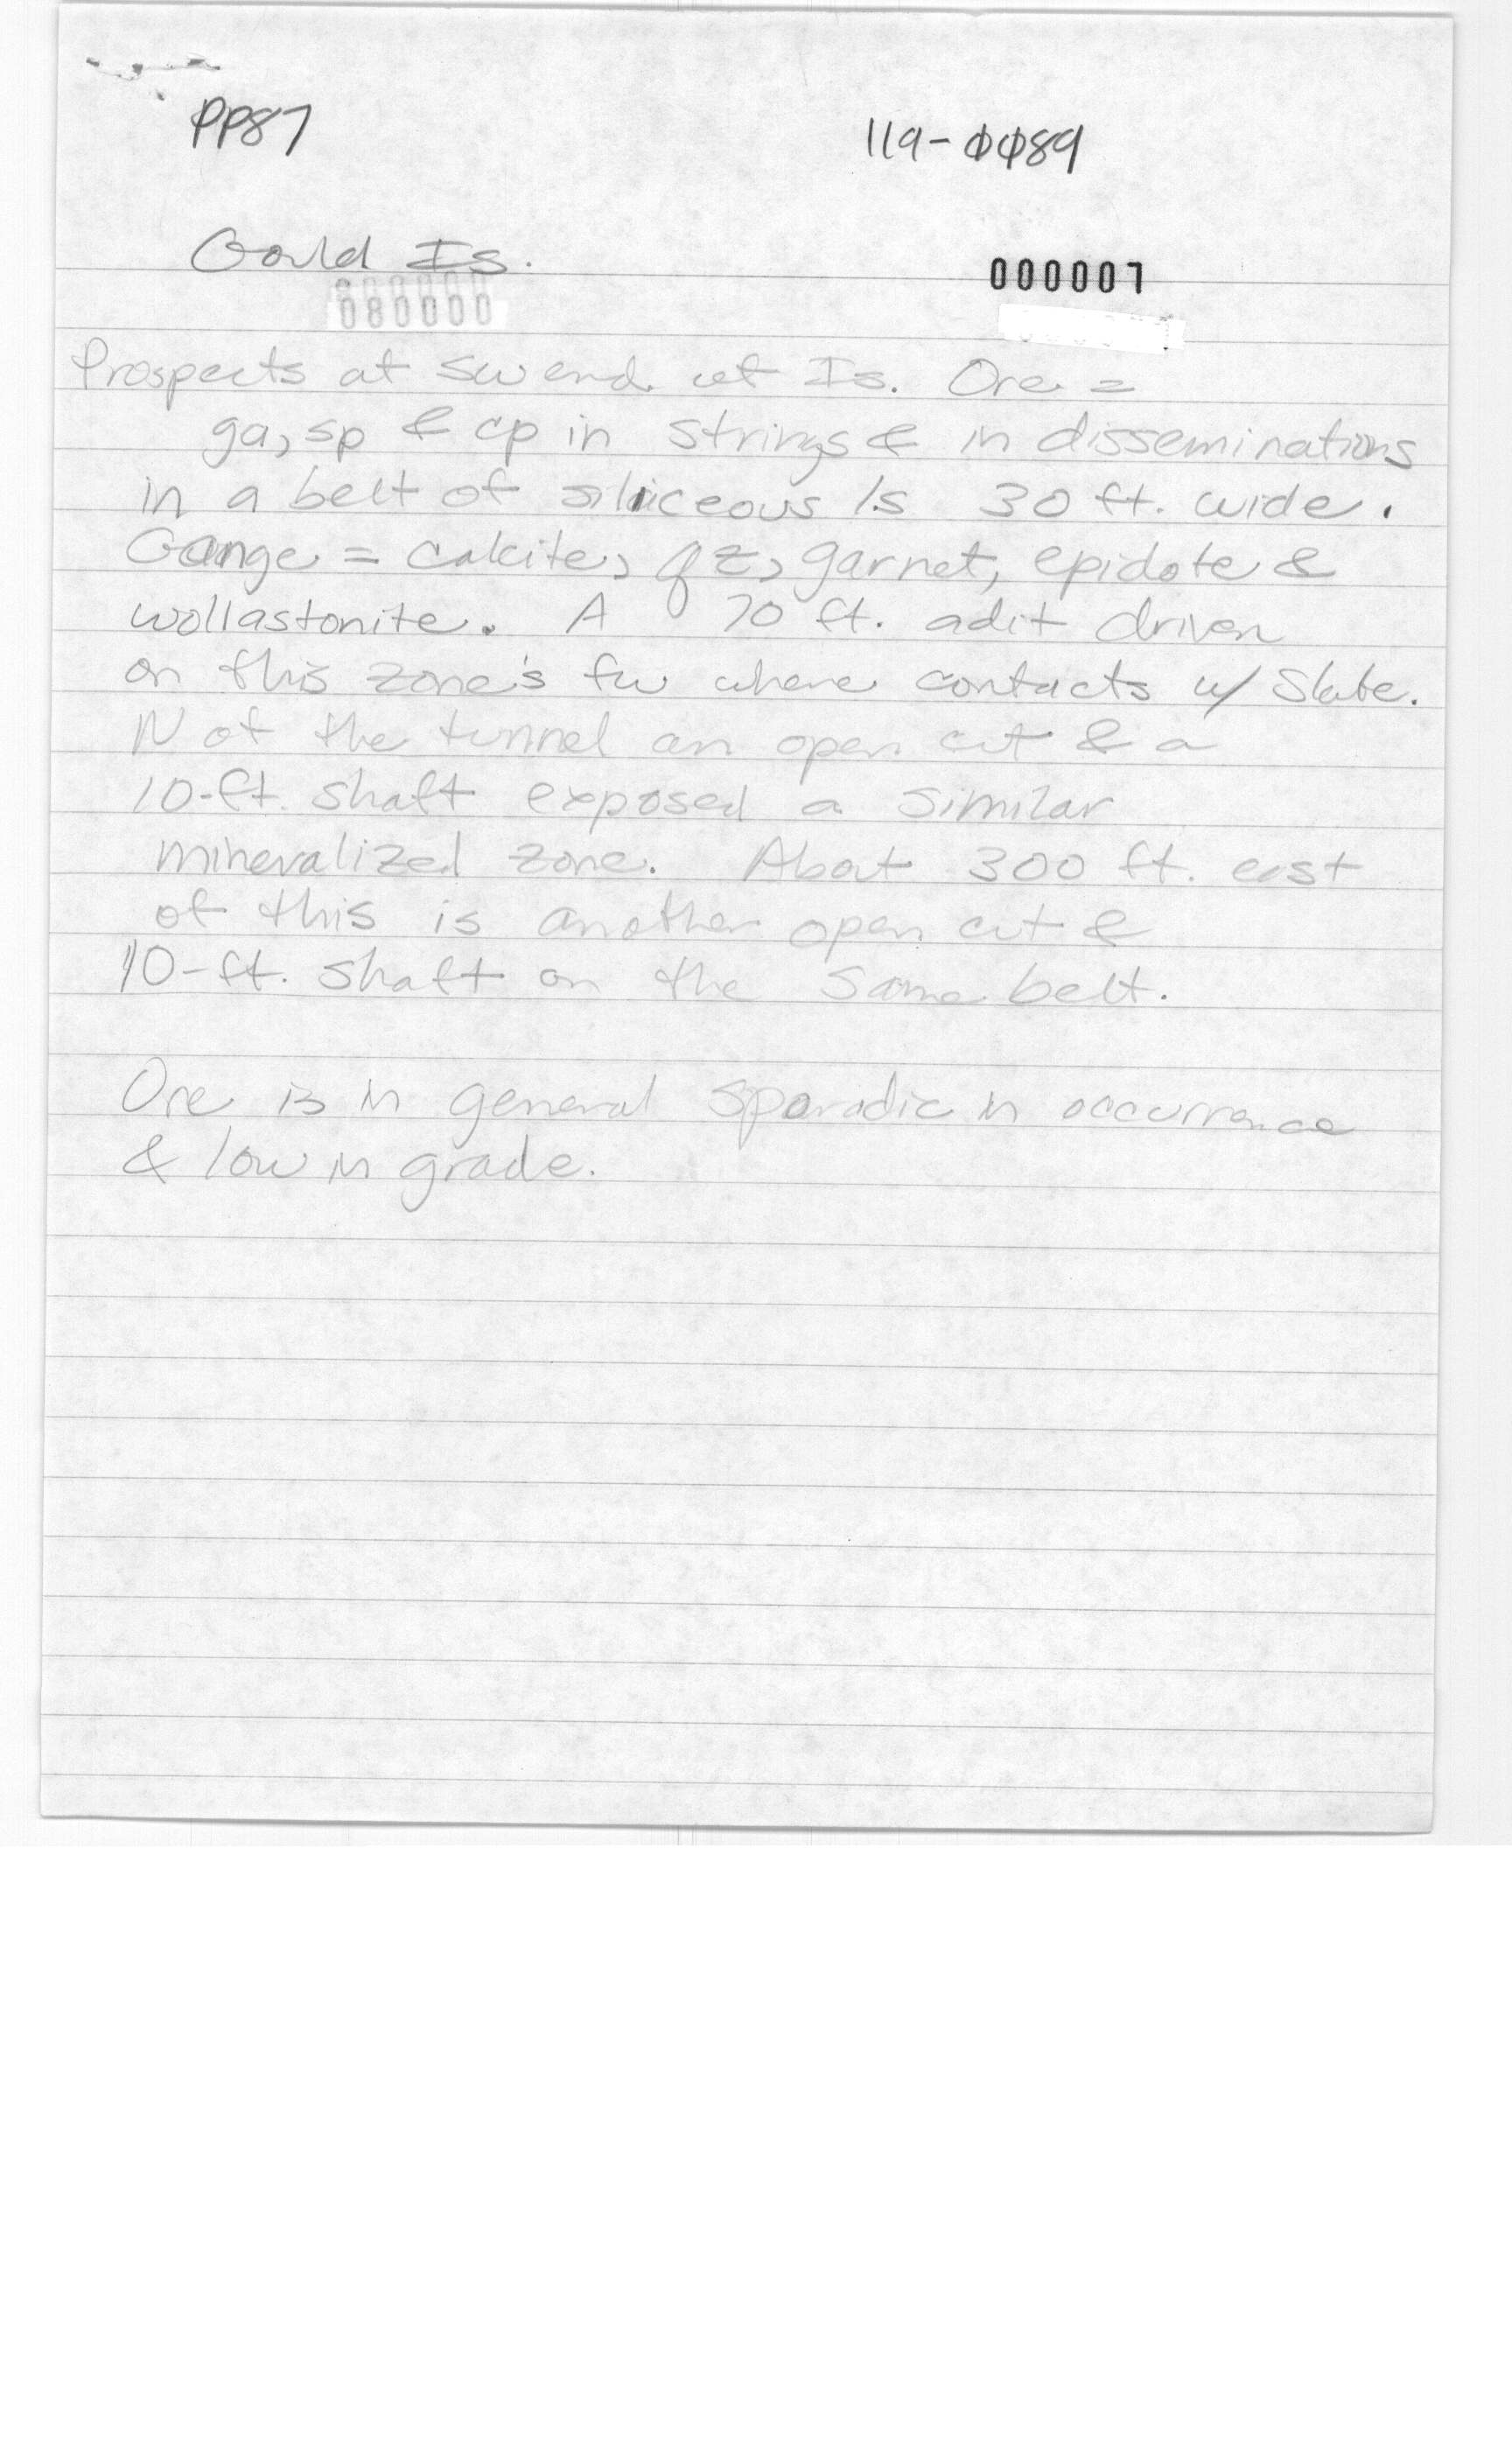 PP87
119-0089
Gould Is.
000007
080000
Prospects at SW end of Is. Ore =
ga, sp & cp in strings & in disseminations
in a belt of siliceous ls 30 ft. wide.
Gange = calcite, qz, garnet, epidote &
wollastonite. A 70 ft. adit driven
on this zone's fw where contacts w/ slate.
N of the tunnel an open cut & a
10-ft. shaft exposed a similar
mineralized zone. About 300 ft. east
of this is another open cut &
10-ft. shaft on the same belt.
Ore is in general sporadic in occurrance
& low in grade.